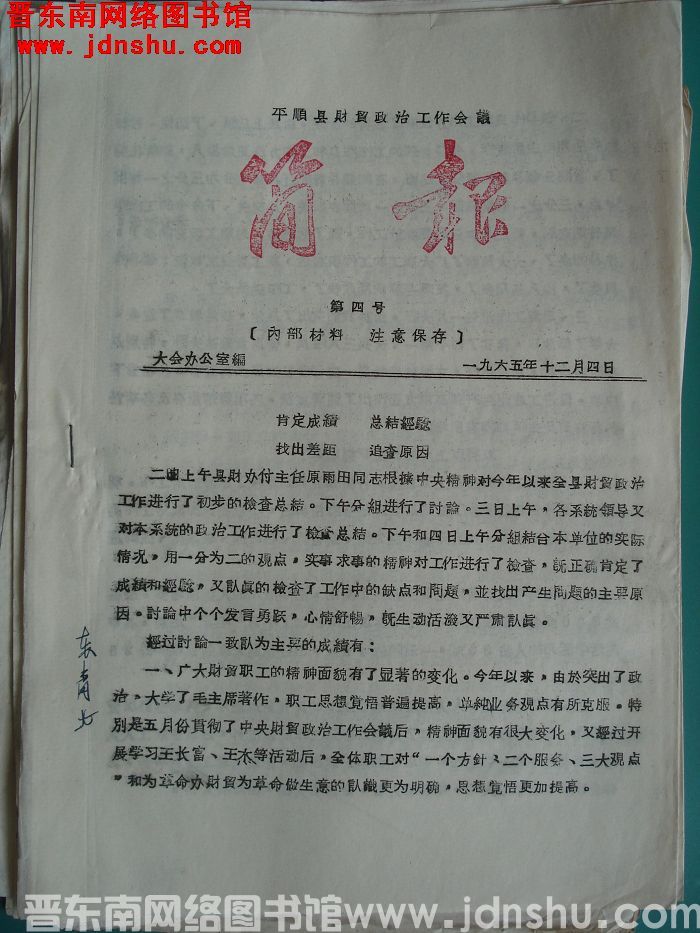 晋东南网络图书馆
www.jdnshu.com
平順县財貿政治工作会議
简报
第四号
〔内部材料 注意保存〕
大会办公室編 一九六五年十二月四日
肯定成績 总結經驗
找出差距 追查原因
二日上午县財办付主任原雨田同志根據中央精神对今年以来全县財貿政治
工作进行了初步的檢查总結。下午分組进行了討論。三日上午,各系統領导又
对本系統的政治工作进行了檢查总結。下午和四日上午分組結合本单位的实际
情况,用一分为二的观点,实事求事的精神对工作进行了檢查,旣正确肯定了
成績和經驗,又認真的檢查了工作中的缺点和問題,並找出产生問題的主要原
因。討論中个个发言勇跃,心情舒暢,旣生动活潑又严肃認真。
經过討論一致認为主要的成績有:
一、广大財貿职工的精神面貌有了显著的变化。今年以来,由於突出了政
治,大学了毛主席著作,职工思想覚悟普遍提高,单純业务观点有所克服。特
別是五月份貫彻了中央財貿政治工作会議后,精神面貌有很大变化,又經过开
展学习王长富、王杰等活动后,全体职工对“一个方針、二个服务、三大观点
”和为革命办財貿为革命做生意的認識更为明确,思想覚悟更加提高。
晋东南网络图书馆www.jdnshu.com